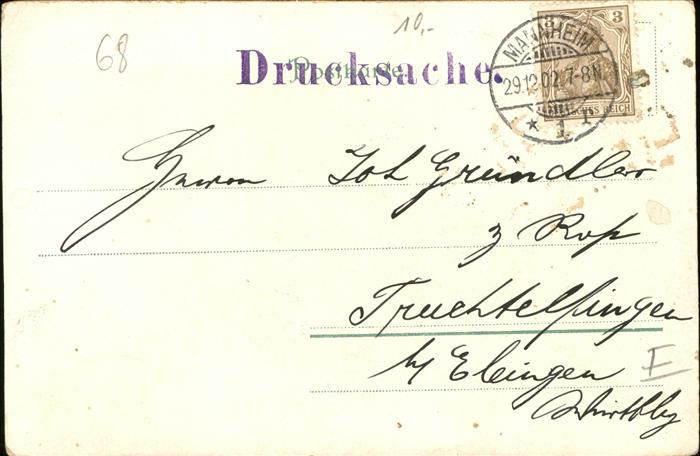 68
10,-
Postkarte
Drucksache.
MANNHEIM
29.12.02. 7-8N.
* 1 r
3 3
DEUTSCHES REICH
Herrn Joh Gründler
z Rop
Truchtelfingen
b/ Ebingen
E
Würtbg